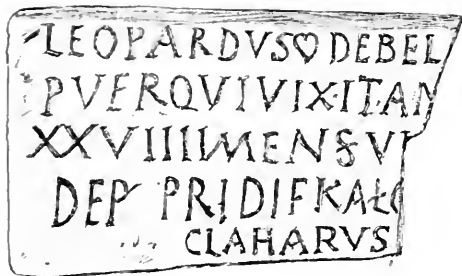 LEOPARDVS♡DEBEL
PVERQVIVIXITAN
XXVIIIIMENSV
DEP PRIDIEKAL
CLAHARVS